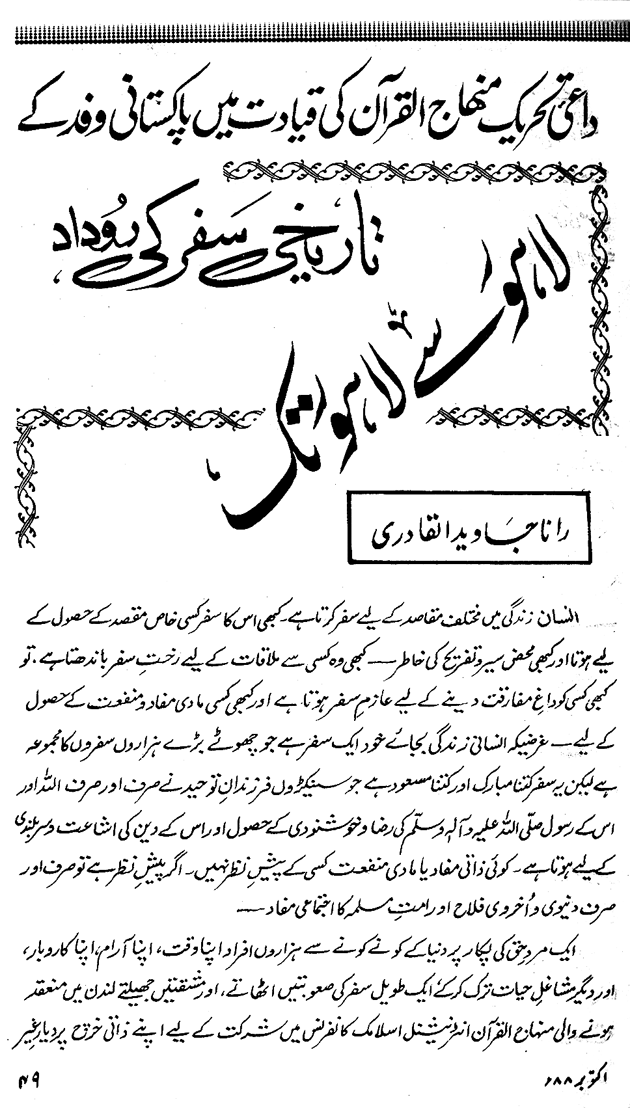 داعئ تحریک منہاج القرآن کی قیادت میں پاکستانی وفد کے
تاریخی سفر کی رُوداد
لاہور سے لاہور تک
رانا جاوید القادری
انسان زندگی میں مختلف مقاصد کے لیے سفر کرتا ہے۔ کبھی اس کا سفر کسی خاص مقصد کے حصول کے
لیے ہوتا اور کبھی محض سیر و تفریح کی خاطر — کبھی وہ کسی سے ملاقات کے لیے رختِ سفر باندھتا ہے، تو
کبھی کسی کو داغِ مفارقت دینے کے لیے عازمِ سفر ہوتا ہے اور کبھی کسی مادی مفاد و منفعت کے حصول
کے لیے — غرضیکہ انسانی زندگی بجائے خود ایک سفر ہے جو چھوٹے بڑے ہزاروں سفروں کا مجموعہ
ہے لیکن یہ سفر کتنا مبارک اور کتنا مسعود ہے جو سینکڑوں فرزندانِ توحید نے صرف اور صرف اللہ اور
اس کے رسول صلی اللہ علیہ وآلہٖ وسلم کی رضا و خوشنودی کے حصول اور اس کے دین کی اشاعت و سربلندی
کے لیے ہوتا ہے۔ کوئی ذاتی مفاد یا مادی منفعت کسی کے پیشِ نظر نہیں۔ اگر پیشِ نظر ہے تو صرف اور
صرف دنیوی و اُخروی فلاح اور امتِ مسلمہ کا اجتماعی مفاد —
ایک مردِ حق کی پکار پر دنیا کے کونے کونے سے ہزاروں افراد اپنا وقت، اپنا آرام، اپنا کاروبار،
اور دیگر مشاغلِ حیات ترک کر کے ایک طویل سفر کی صعوبتیں اٹھاتے، اور مشقتیں جھیلتے لندن میں منعقد
ہونے والی منہاج القرآن انٹرنیشنل اسلامک کانفرنس میں شرکت کے لیے اپنے ذاتی خرچ پر دیارِ غیر
اکتوبر ۸۸ء
۴۹